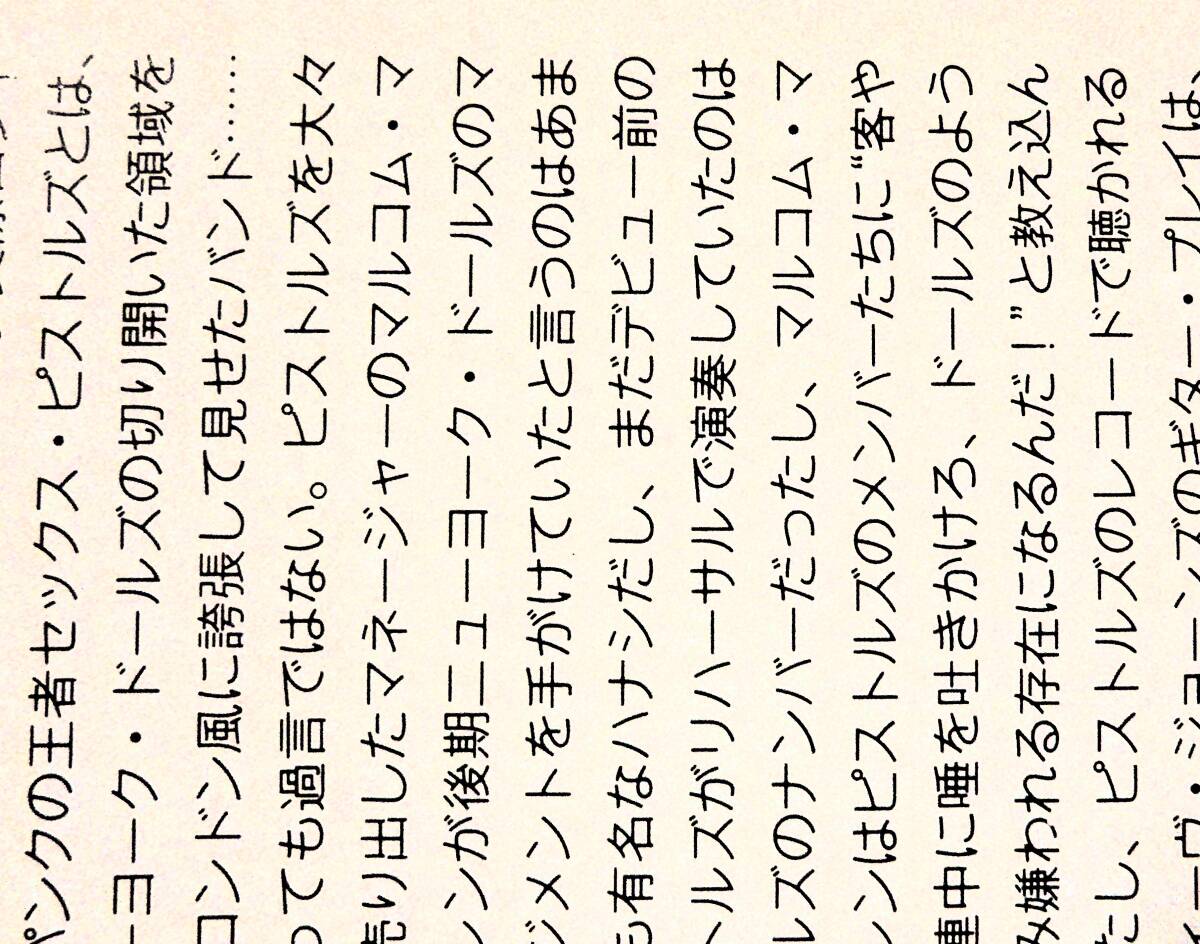 パンクの王者セックス・ピストルズとは、
ーヨーク・ドールズの切り開いた領域を
ロンドン風に誇張して見せたバンド……
っても過言ではない。ピストルズを大々
売り出したマネージャーのマルコム・マ
ンが後期ニューヨーク・ドールズのマ
ジメントを手がけていたと言うのはあま
も有名なハナシだし、まだデビュー前の
トルズがリハーサルで演奏していたのは
ルズのナンバーだったし、マルコム・マ
ンはピストルズのメンバーたちに“客や
連中に唾を吐きかけろ、ドールズのよう
み嫌われる存在になるんだ！”と教え込ん
たし、ピストルズのレコードで聴かれる
ィーヴ・ジョーンズのギター・プレイは、